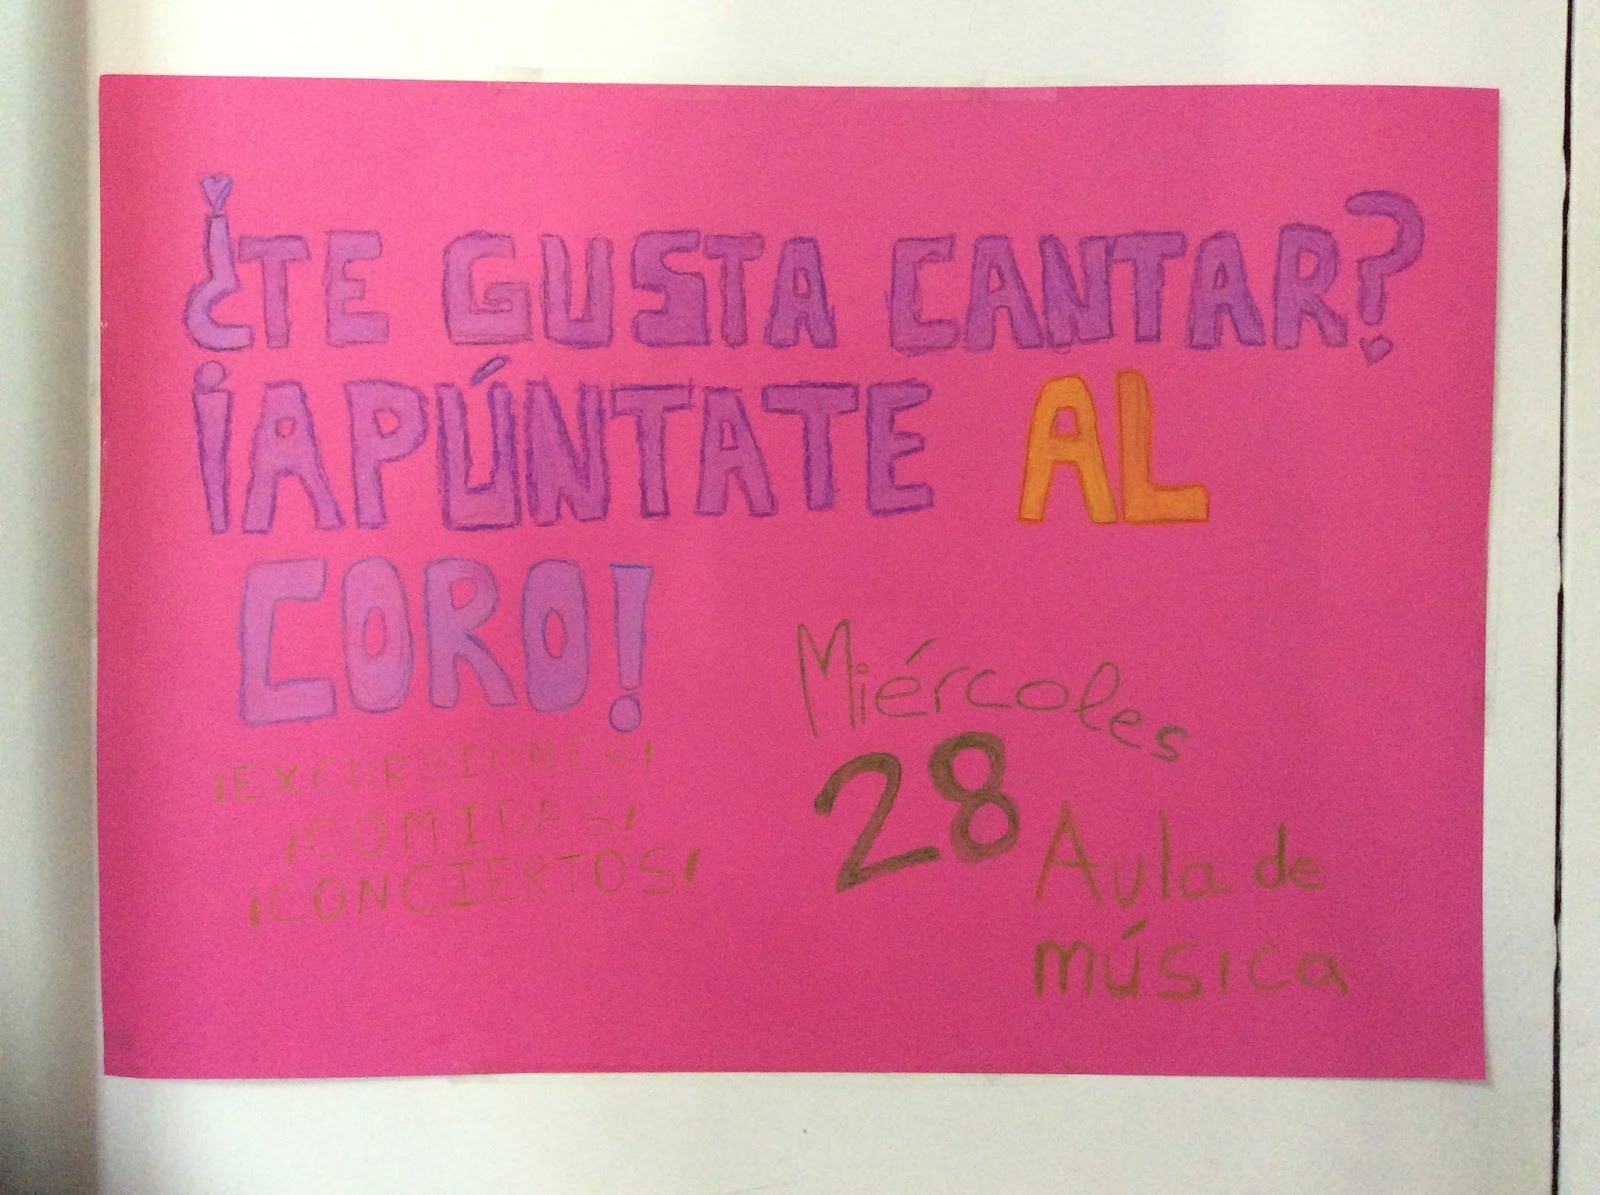 ¿TE GUSTA CANTAR?
¡APÚNTATE AL
CORO!
¡EXCURSIONES!
¡COMIDAS!
¡CONCIERTOS!
Miércoles
28
Aula de
música